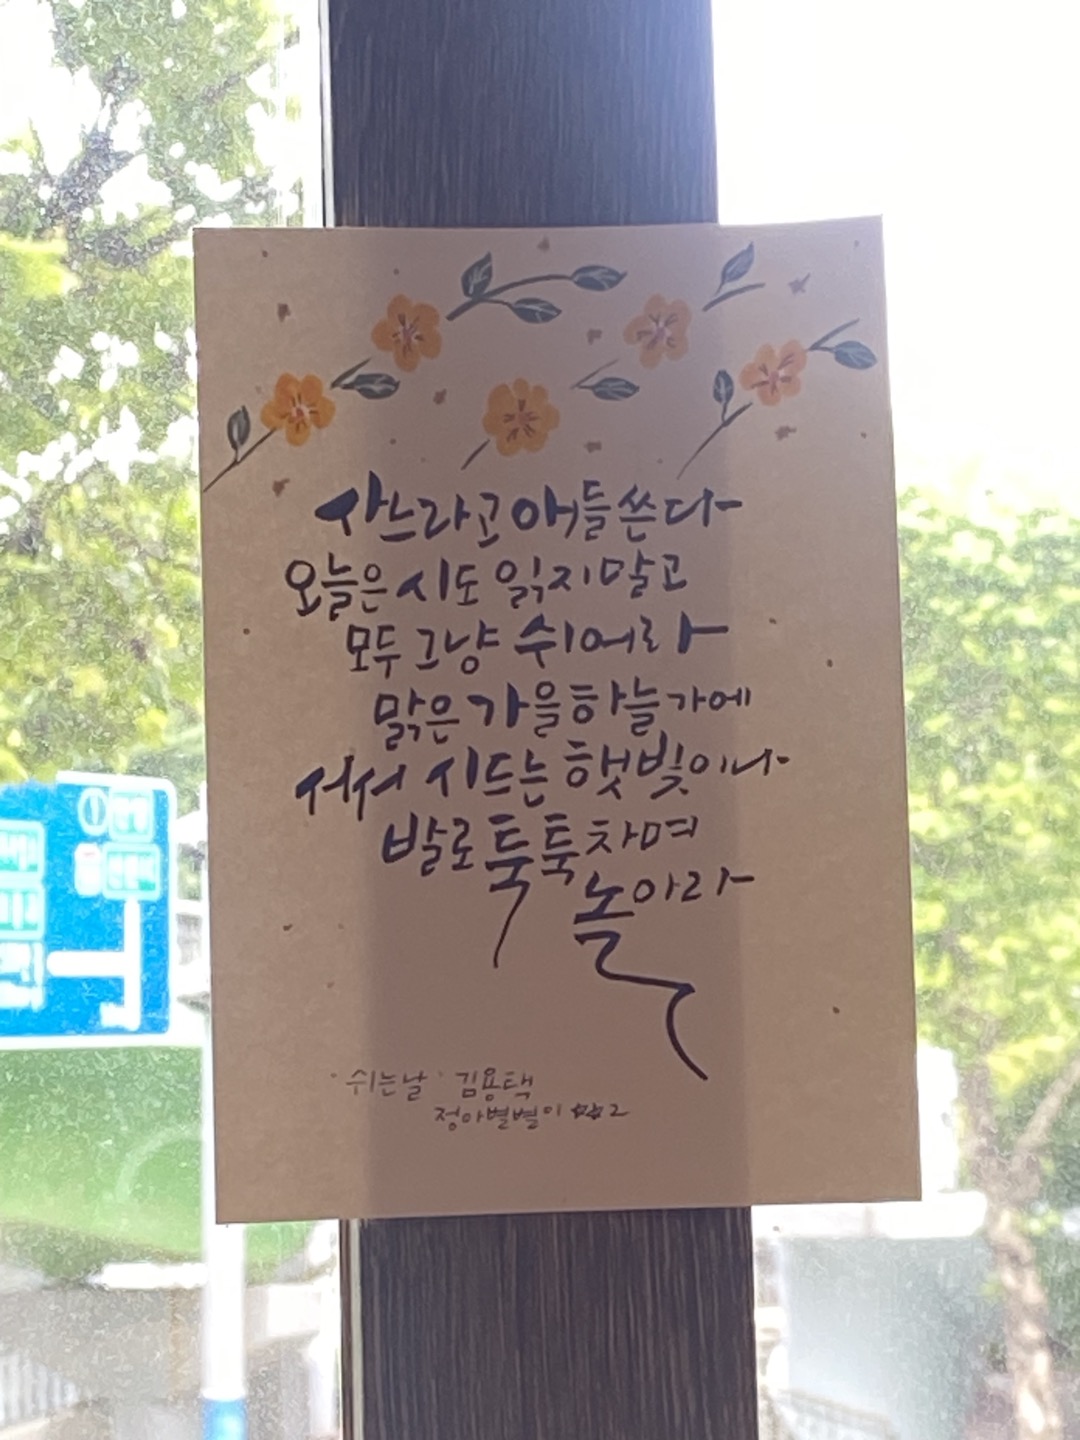 사느라고 애들 쓴다
오늘은 시도 읽지 말고
모두 그냥 쉬어라
맑은 가을 하늘가에
서서 시드는 햇빛이나
발로 툭툭 차며
놀아라
'쉬는 날' 김용택
정아별별이